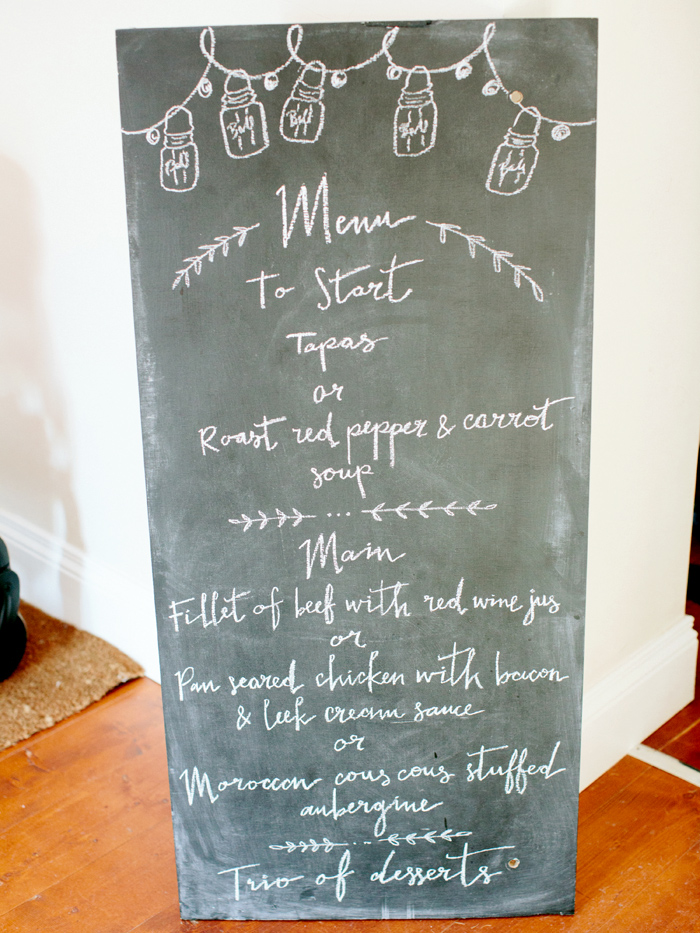 Menu
To Start
Tapas
or
Roast red pepper & carrot
soup
Main
Fillet of beef with red wine jus
or
Pan seared chicken with bacon
& leek cream sauce
or
Moroccan cous cous stuffed
aubergine
Trio of desserts